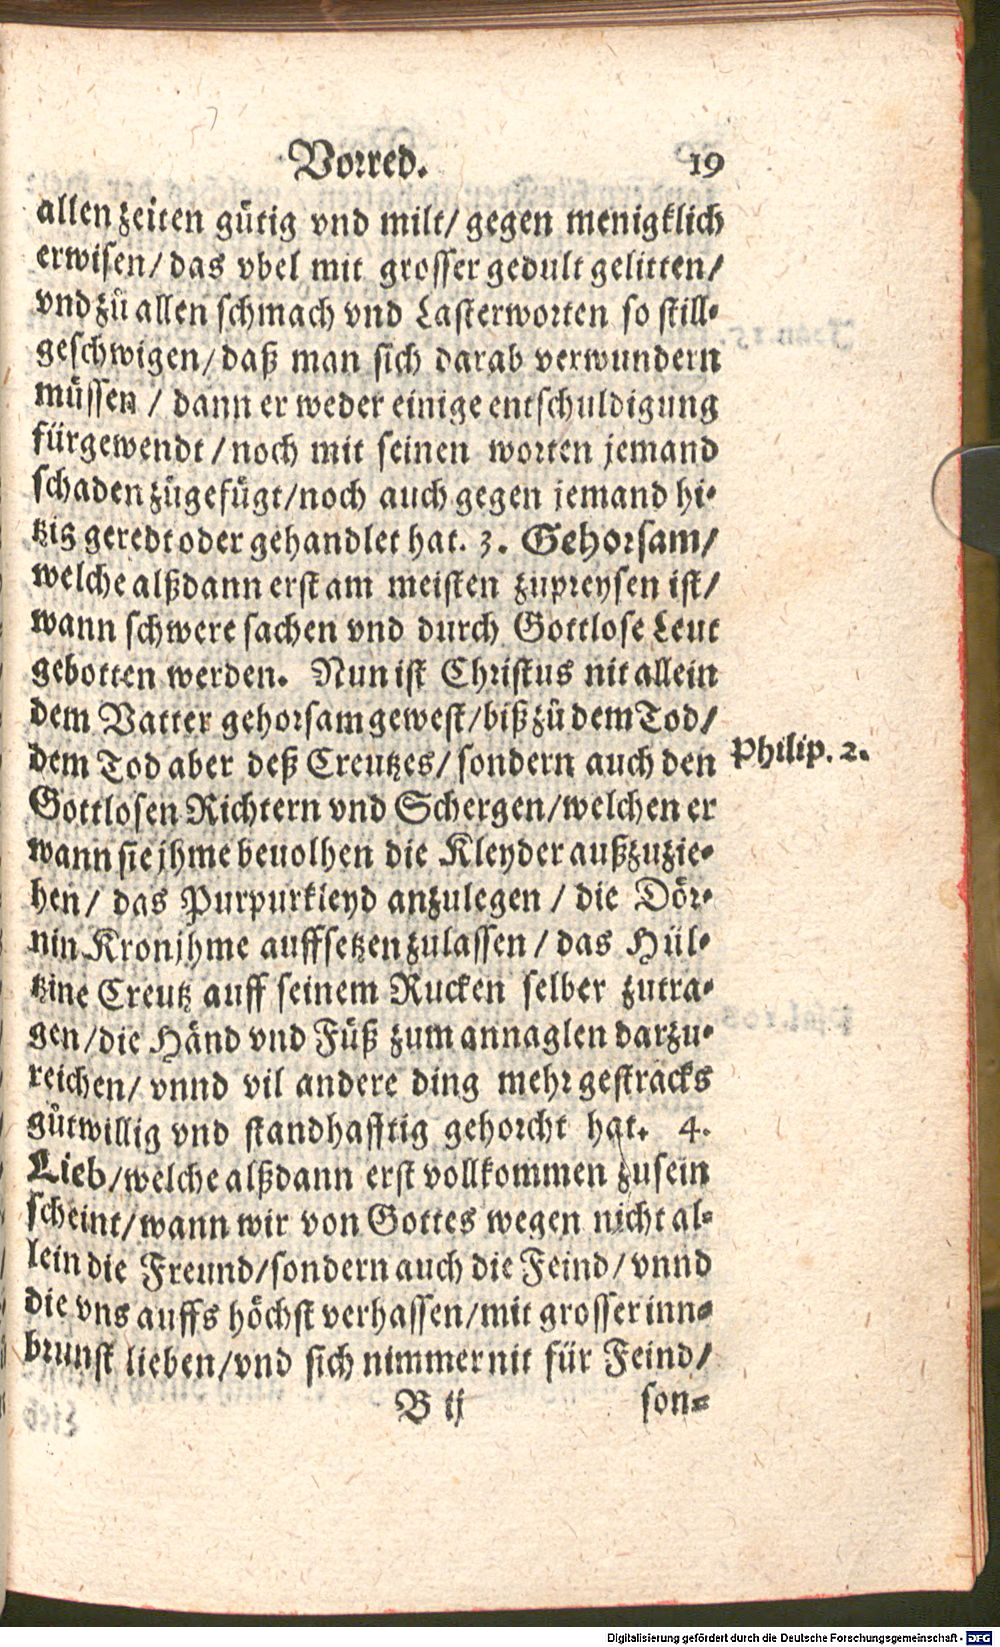 Vorred. 19
allen zeiten gütig vnd milt/ gegen menigklich
erwisen/ das vbel mit grosser gedult gelitten/
vnd zů allen schmach vnd Lasterworten so still-
geschwigen/ daß man sich darab verwundern
müssen / dann er weder einige entschuldigung
fürgewendt / noch mit seinen worten jemand
schaden zůgefügt/noch auch gegen jemand hi-
tzig geredt oder gehandlet hat. 3. Gehorsam/
welche alßdann erst am meisten zupreysen ist/
wann schwere sachen vnd durch Gottlose Leut
gebotten werden. Nun ist Christus nit allein
dem Vatter gehorsam gewest/biß zů dem Tod/
dem Tod aber deß Creutzes/ sondern auch den
Philip. 2.
Gottlosen Richtern vnd Schergen/welchen er
wann sie jhme beuolhen die Kleyder außzuzie-
hen/ das Purpurkleyd anzulegen / die Dör-
nin Kron jhme auffsetzen zulassen / das Hül-
tzine Creutz auff seinem Rucken selber zutra-
gen/die Händ vnd Füß zum annaglen darzu-
reichen/ vnnd vil andere ding mehr gestracks
gůtwillig vnd standhafftig gehorcht hat. 4.
Lieb/welche alßdann erst vollkommen zusein
scheint/wann wir von Gottes wegen nicht al-
lein die Freund/sondern auch die Feind/ vnnd
die vns auffs höchst verhassen/mit grosser inn-
brunst lieben/vnd sich nimmer nit für Feind/
B ij son-
Digitalisierung gefördert durch die Deutsche Forschungsgemeinschaft - DFG